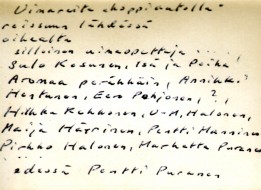 Uimareita shoppiautolla
reissuun lähdössä
oikealta
silloinen uimaopettaja
Sulo Kosunen, Isä ja Poika
Aromaa peräkkäin, Annikki
Hertunen, Eero Pohjonen, ?,
Hilkka Kekkonen, U-M, Halonen,
Maija Härminen, Pentti Manninen
Pirkko Halonen, Marketta Puranen
edessä Pentti Puranen